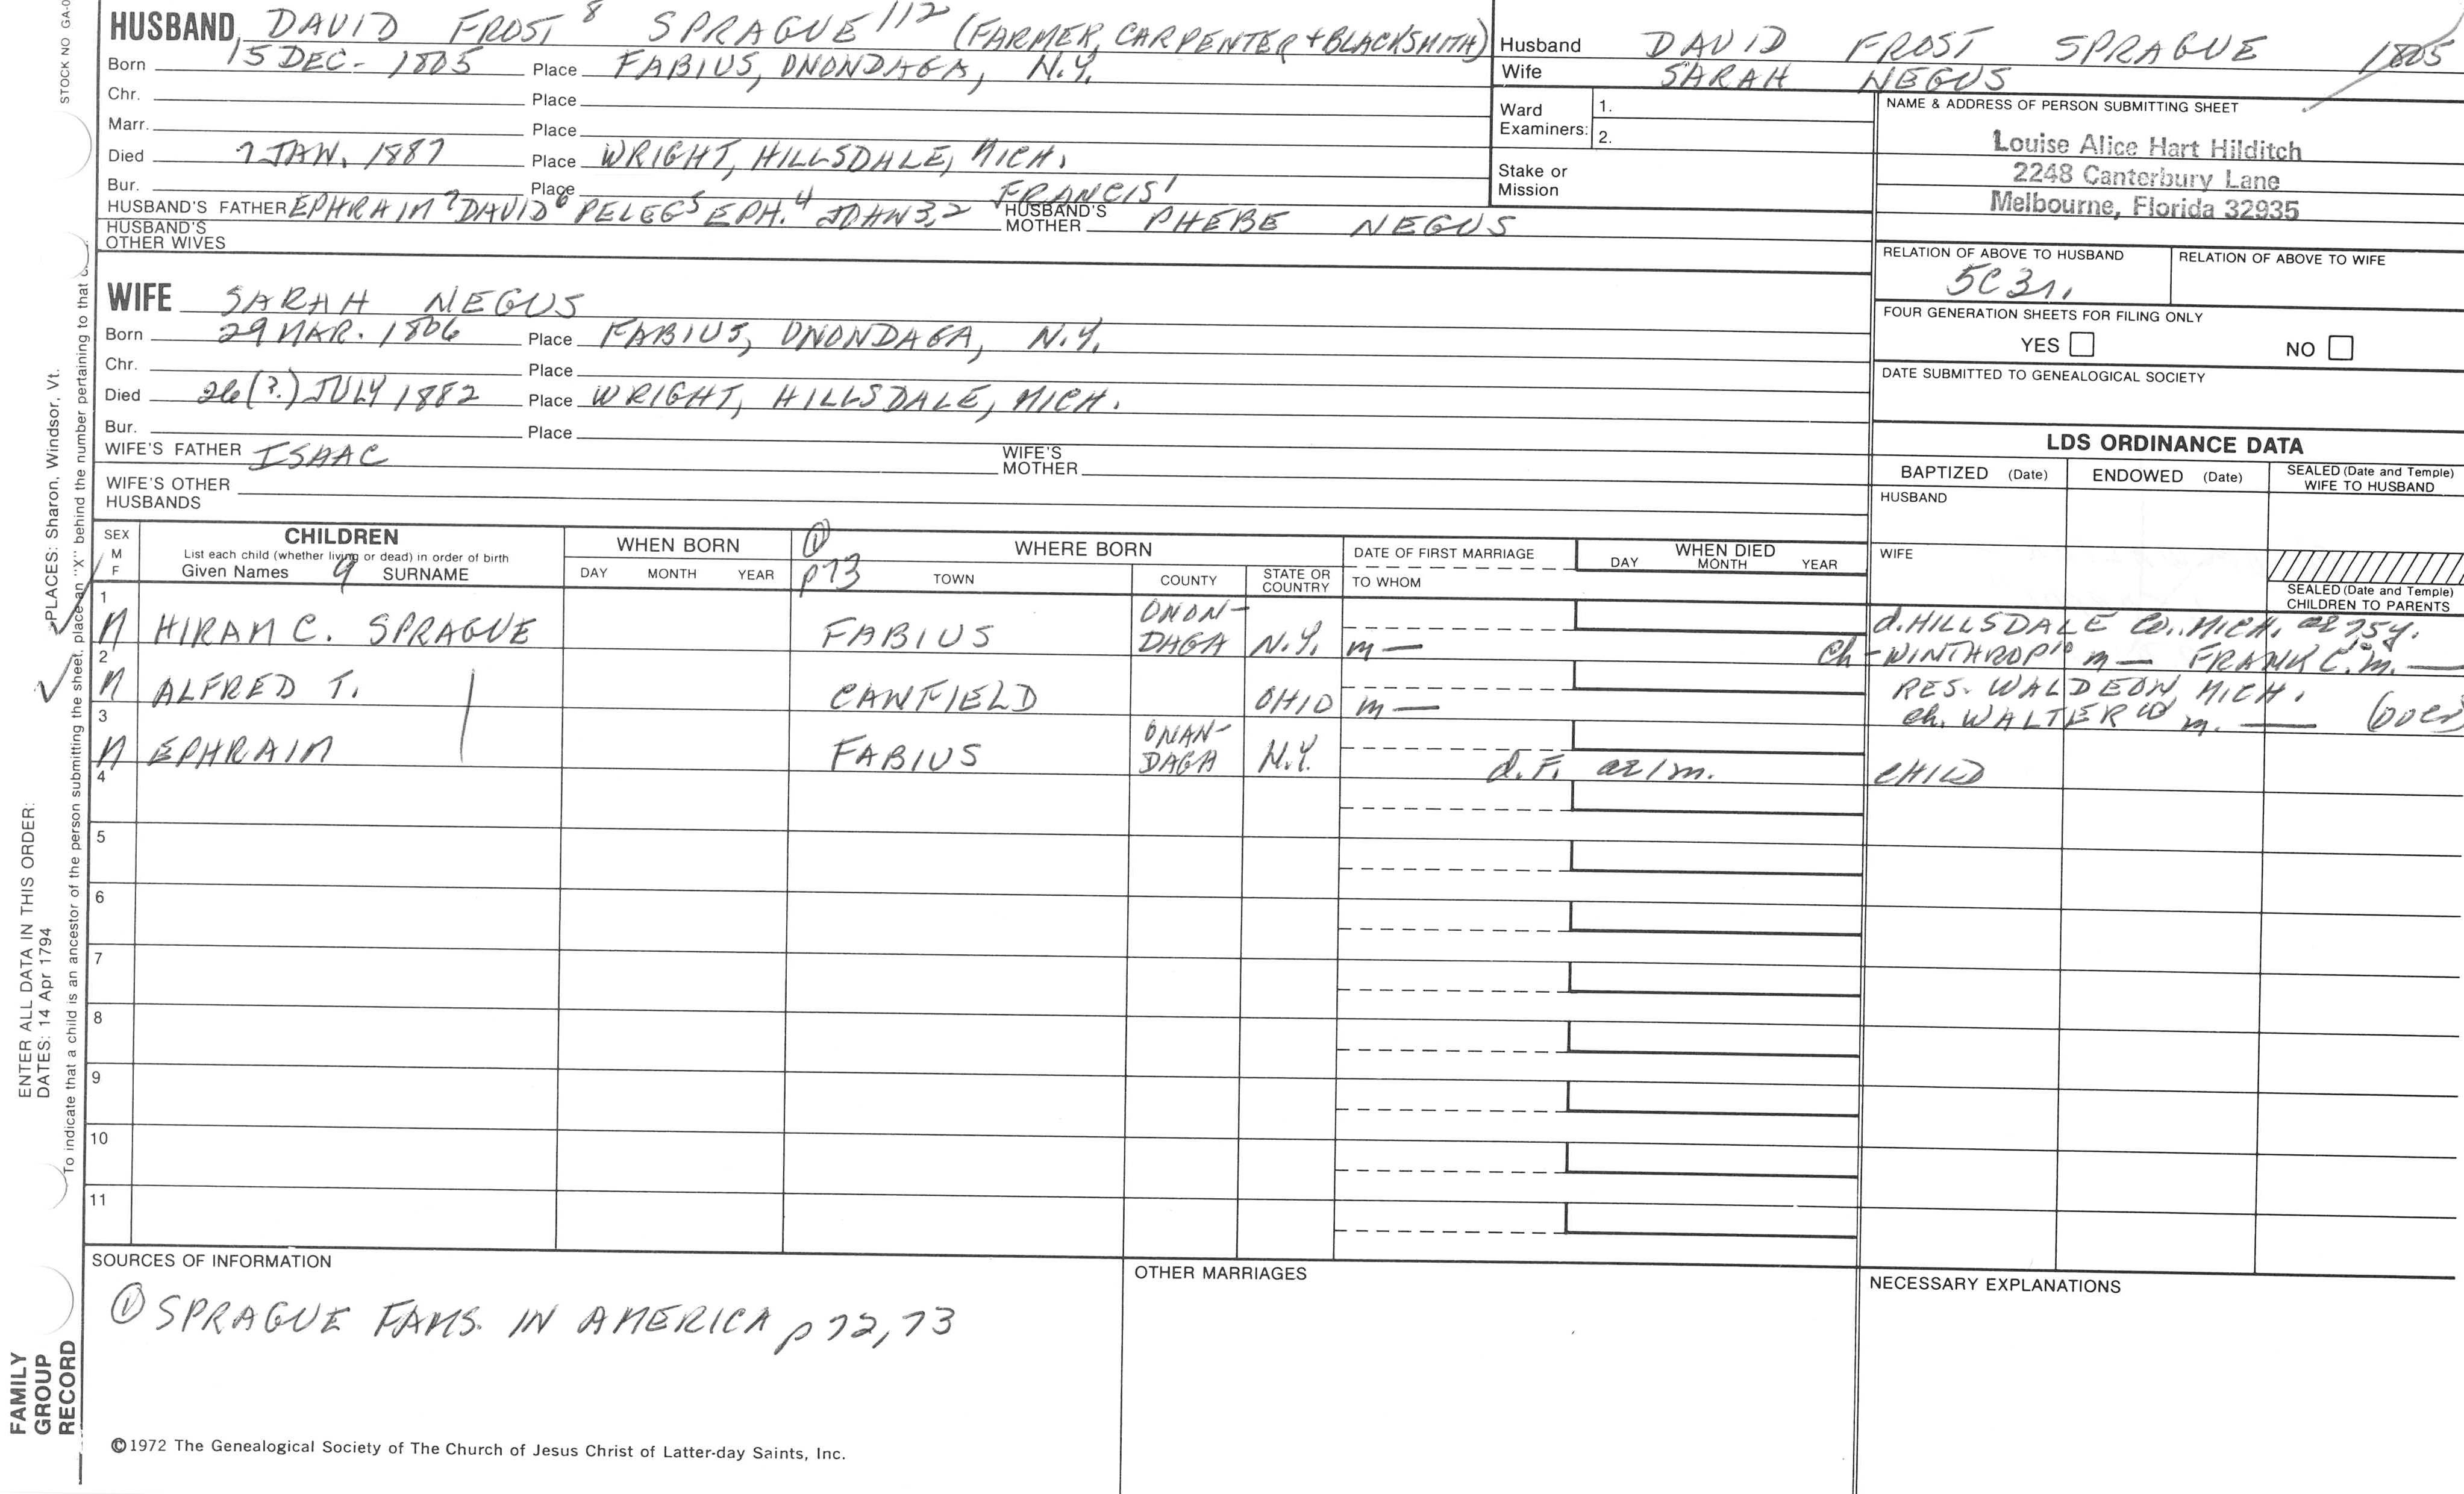 STOCK NO GA-0
HUSBAND DAVID FROST 8 SPRAGUE 112 (FARMER, CARPENTER + BLACKSMITH)
Born 15 DEC. 1805 Place FABIUS, ONONDAGA, N.Y.
Chr. Place
Marr. Place
Died 7 JAN. 1887 Place WRIGHT, HILLSDALE, MICH.
Bur. Place
HUSBAND'S FATHER EPHRAIM 7 DAVID 6 PELEG 5 EPH. 4 JOHN 3,2 FRANCIS 1 HUSBAND'S MOTHER PHEBE NEGUS
HUSBAND'S OTHER WIVES
Husband DAVID FROST SPRAGUE 1805
Wife SARAH NEGUS
Ward Examiners: 1.
2.
Stake or Mission
NAME & ADDRESS OF PERSON SUBMITTING SHEET
Louise Alice Hart Hilditch
2248 Canterbury Lane
Melbourne, Florida 32935
RELATION OF ABOVE TO HUSBAND
5C3r.
RELATION OF ABOVE TO WIFE
FOUR GENERATION SHEETS FOR FILING ONLY
YES NO
DATE SUBMITTED TO GENEALOGICAL SOCIETY
WIFE SARAH NEGUS
Born 29 MAR. 1806 Place FABIUS, ONONDAGA, N.Y.
Chr. Place
Died 26(?) JULY 1882 Place WRIGHT, HILLSDALE, MICH.
Bur. Place
WIFE'S FATHER ISAAC WIFE'S MOTHER
WIFE'S OTHER HUSBANDS
LDS ORDINANCE DATA
BAPTIZED (Date) ENDOWED (Date) SEALED (Date and Temple) WIFE TO HUSBAND
HUSBAND
WIFE
SEALED (Date and Temple) CHILDREN TO PARENTS
SEX M F
CHILDREN
List each child (whether living or dead) in order of birth
Given Names 9 SURNAME
WHEN BORN
DAY MONTH YEAR
① p73
WHERE BORN
TOWN COUNTY STATE OR COUNTRY
DATE OF FIRST MARRIAGE
TO WHOM
WHEN DIED
DAY MONTH YEAR
1 M HIRAM C. SPRAGUE FABIUS ONON-DAGA N.Y. m — d. HILLSDALE CO., MICH. ae 75y.
ch - WINTHROP 10 m — FRANK C. 10 m. —
2 M ALFRED T. CANFIELD OHIO m — RES. WALDEON, MICH.
ch. WALTER 10 m. — (over)
3 M EPHRAIM FABIUS ONAN-DAGA N.Y. d. F. ae 1m. CHILD
4
5
6
7
8
9
10
11
SOURCES OF INFORMATION
① SPRAGUE FAMS. IN AMERICA p 72, 73
OTHER MARRIAGES
NECESSARY EXPLANATIONS
©1972 The Genealogical Society of The Church of Jesus Christ of Latter-day Saints, Inc.
ENTER ALL DATA IN THIS ORDER:
DATES: 14 Apr 1794
PLACES: Sharon, Windsor, Vt.
To indicate that a child is an ancestor of the person submitting the sheet, place an "X" behind the number pertaining to that
FAMILY
GROUP
RECORD